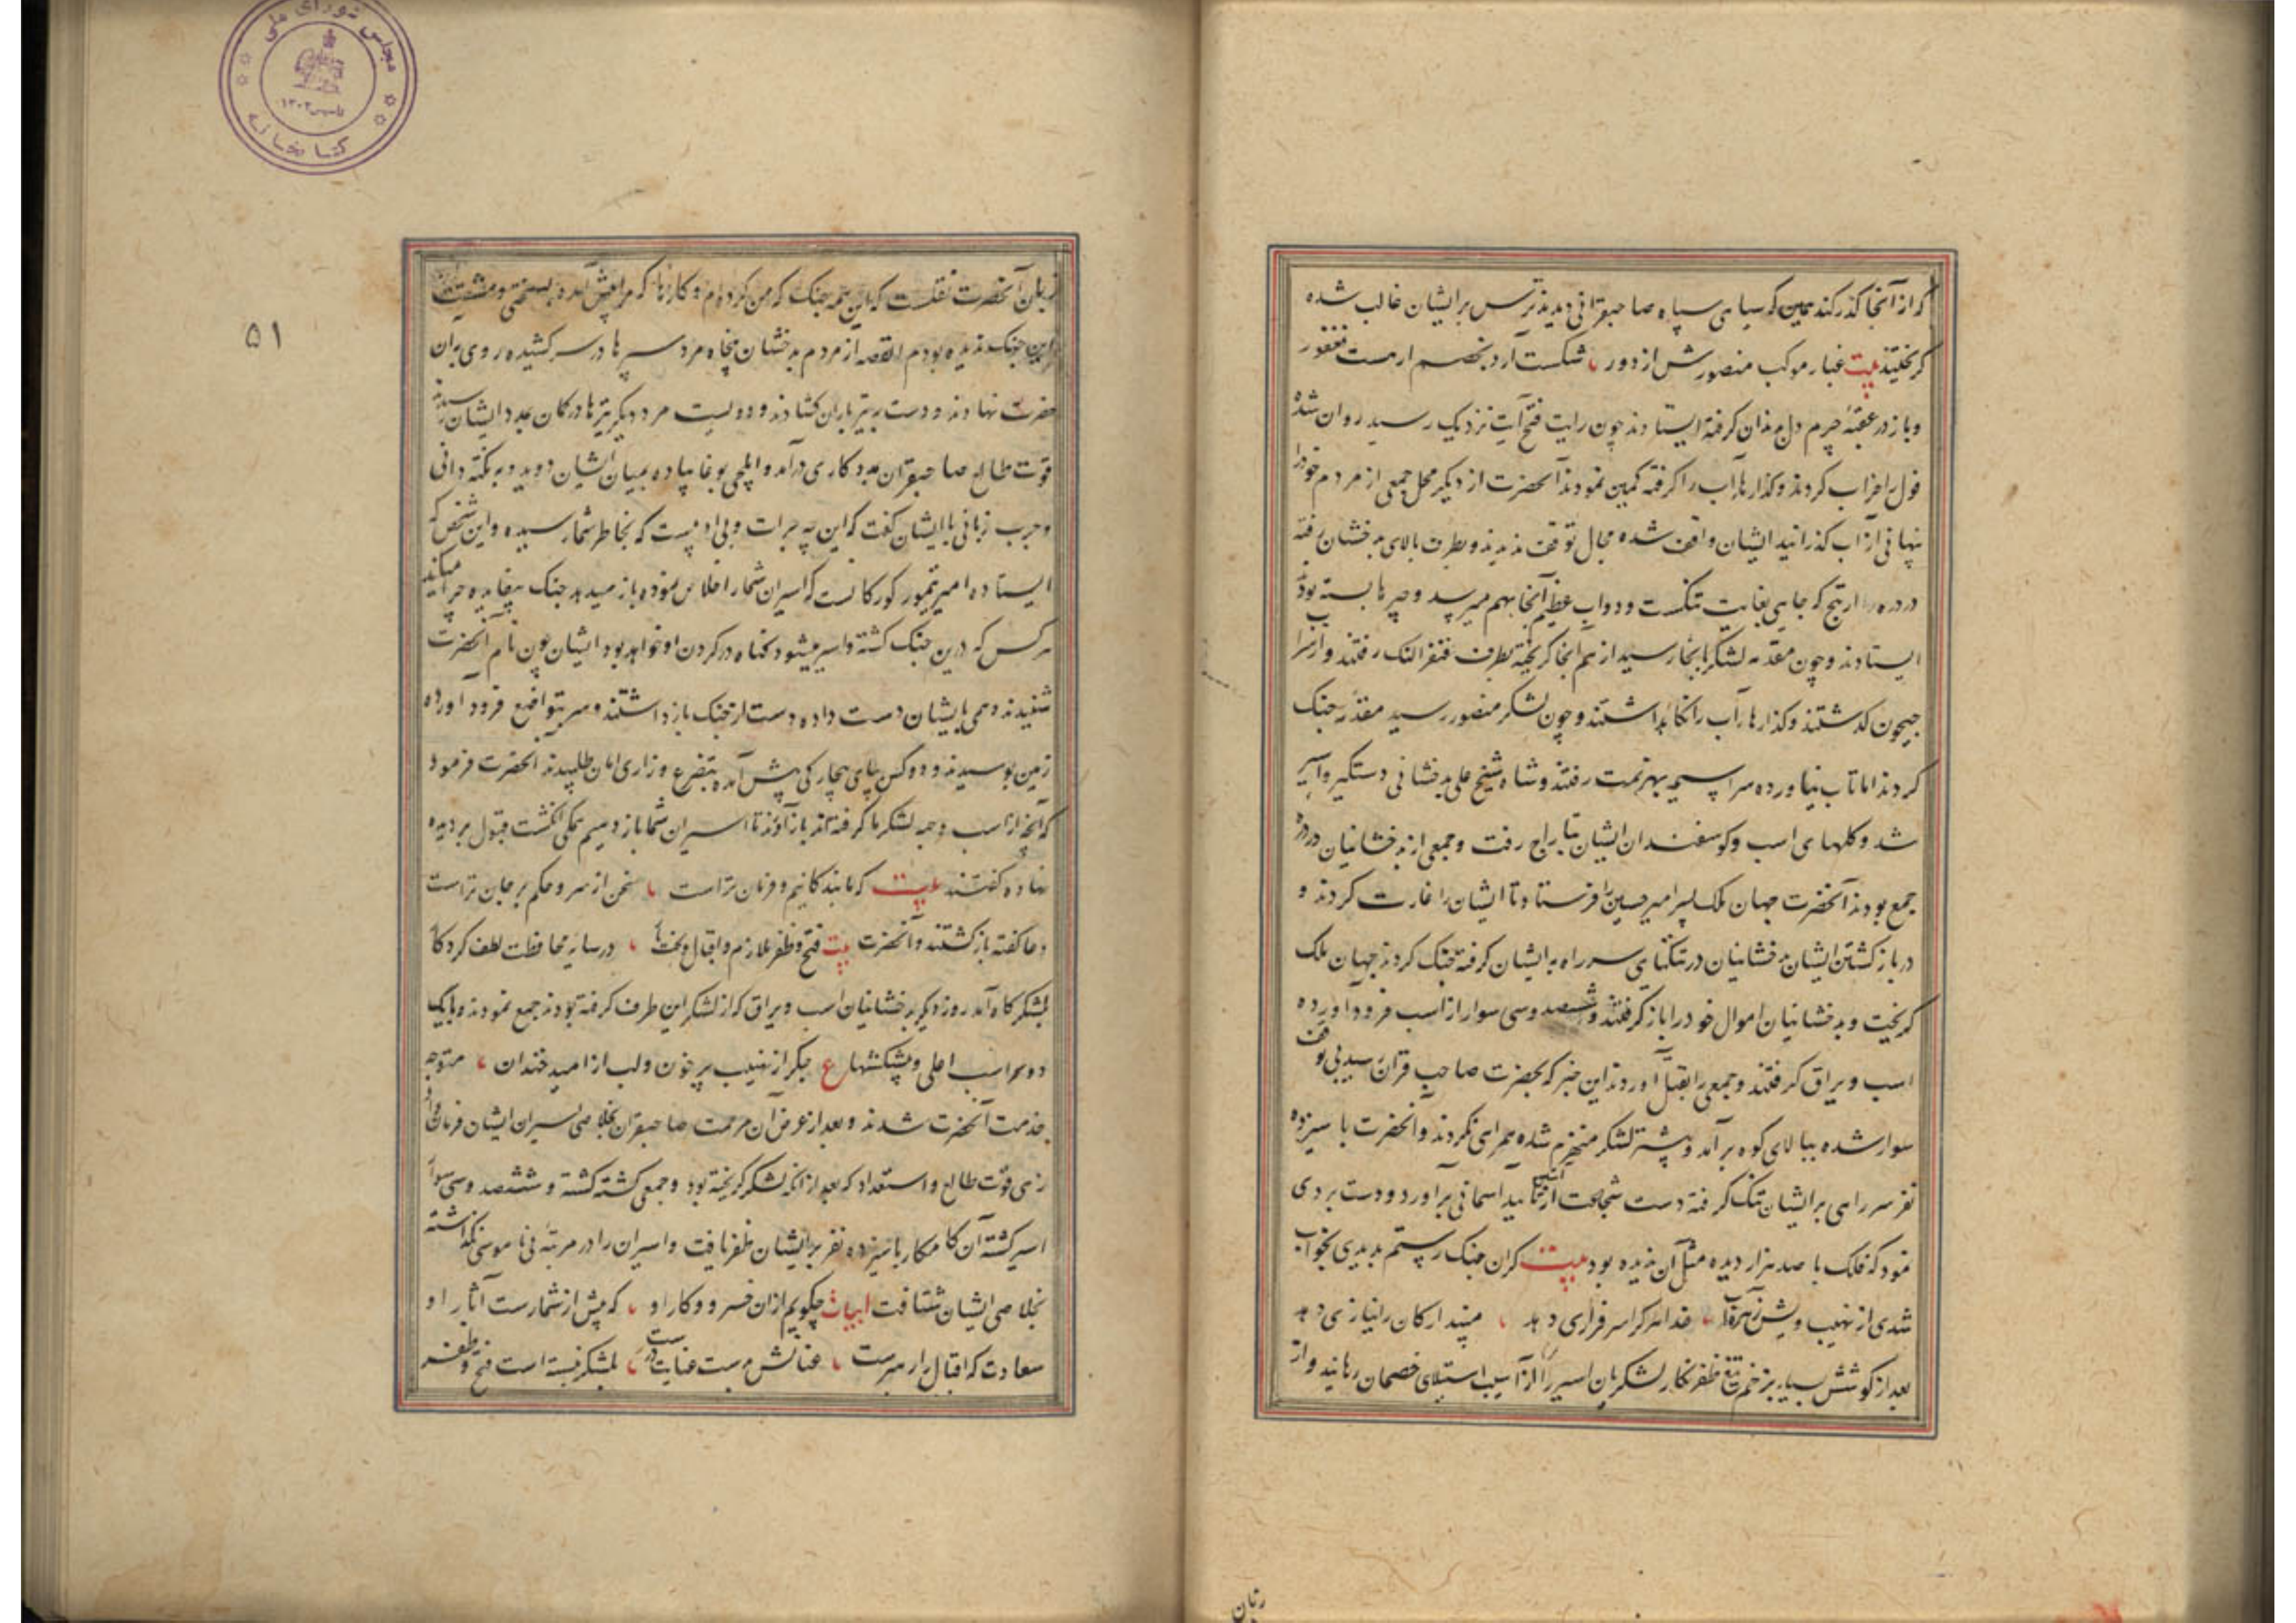 که از آنجا گذر کند همین که سیاهی سپاه صاحبقرانی دیدند ترس بر ایشان غالب شده
کریختند بیت غبار موکب منصورش از دور شکست آرد بخصم ارهست فغفور
و باز در عقبهٔ جرم دل بران گرفته ایستادند چون رایت فتح آیت نزدیک رسید روان شده
قول را خراب کردند و گذارهای آب را گرفته کمین نمودند آنحضرت از دیگر محل جمعی از مردم خود را
پنهانی از آب گذرانید ایشان واقف شده مجال توقف ندیدند و بطرف بالای بدخشان رفته
در دره ارتنج که جایی بغایت تنکست و دو آب عظیم آنجا بهم میرسد و چپرها بسته بود
ایستادند و چون مقدمه لشکر بآنجا رسید از هم آنجا کریخته بطرف قنغر النک رفتند و از سر
جیحون گذشتند و گذارهای آب را نگاه داشتند و چون لشکر منصور رسید مقدمه جنک
کردند اما تاب نیاورده سراسیمه بهزیمت رفتند و شاه شیخ علی بدخشانی دستگیر و اسیر
شد و گلهای اسب و گوسفندان ایشان بتاراج رفت و جمعی از بدخشانیان در دره
جمع بودند آنحضرت جهان ملک پسر امیر حسین را فرستاد تا ایشان را غارت کردند و
در باز گشتن ایشان بدخشانیان در تنگنای سر راه بر ایشان گرفته جنک کردند جهان ملک
کریخت و بدخشانیان اموال خود را باز گرفتند و ششصد و سی سوار از اسب فرود آورده
اسب و یراق گرفتند و جمعی را بقتل آوردند این خبر که بحضرت صاحب قران رسید بی توقف
سوار شده ببالای کوه برآمد و بیشتر لشکر منهزم شده همراهی نکردند و آنحضرت با سیزده
نفر سر راهی بر ایشان تنک گرفته دست شجاعت از آستین تایید آسمانی برآورد و دست بردی
نمود که فلک با صد هزار دیده مثل آن ندیده بود بیت گر آن جنک رستم بدیدی بخواب
شدی از نهیب ویش زهره آب خدا هر کرا سرفرازی دهد مپندار کان را نیازی دهد
بعد از کوشش بسیار بزخم تیغ ظفر نگار لشکریان اسیر را از آسیب استیلای خصمان رهانید و از
زبان
زبان آنحضرت نقلست که این همه جنک که من کرده ام و کارزارها که مرا پیش آمده بسختی و مشقت
این جنک ندیده بودم القصه از مردم بدخشان پنجاه مرد سپرها در سر کشیده روی به آن
حضرت نهادند و دست به تیر باران گشادند و دویست مرد دیگر تیرها در کمان بمدد ایشان رسید
قوت طالع صاحبقران مددکاری درآمد و ایلچی بوغا پیاده بمیان ایشان دوید و به نکته دانی
و چرب زبانی با ایشان گفت که این چه جرات و بی ادبیست که بخاطر شما رسیده و این شخص که
ایستاده امیر تیمور کورکانست که اسیران شما را خلاص نموده باز میدهد جنک بیفایده چرا میکنید
هر کس که درین جنک کشته و اسیر میشود گناه در گردن او خواهد بود ایشان چون نام آنحضرت
شنیدند و همی بایشان دست داده دست از جنک باز داشتند و سر بتواضع فرود آورده
زمین بوسیدند و دو کس بپای بیچارگی پیش آمده بتضرع و زاری امان طلبیدند آنحضرت فرمود
که آنچه از اسب و جبه لشکر ما گرفته اند باز آورند تا اسیران شما باز دهیم همگی انگشت قبول بر دیده
نهاده گفتند بیت که ما بندگانیم و فرمان تراست سخن از سر و حکم بر جان تراست
دعا گفته باز گشتند و آنحضرت بیت فتح و ظفر ملازم و اقبال و بخت یار در سایهٔ محافظت لطف کردگار
بلشکرگاه آمد روز دیگر بدخشانیان اسب و یراق که از لشکر این طرف گرفته بودند جمع نمودند و با یک
دو سر اسب اعلی و پیشکشها ع جگر از نهیب پر خون و لب از امید خندان متوجه
خدمت آنحضرت شدند و بعد از عرض آن مرحمت صاحبقران بخلاصی اسیران ایشان فرمان داد
زهی قوت طالع و استعداد که بعد از آنکه لشکر گریخته بود و جمعی کشته گشته و ششصد و سی سوار
اسیر گشته آن کامکار با سیزده نفر بر ایشان ظفر یافت و اسیران را در مرتبه بی ناموسی نگذاشته
بخلاصی ایشان شتافت ابیات چگویم از آن فر و کار او که بیش از شمارست آثار او
سعادت که اقبال را رهبرست عنانش بدست عنایت درست بلشکر نبسته است فتح و ظفر
۵۱
مجلس شورای ملی
تاسیس ۱۳۰۲
کتابخانه